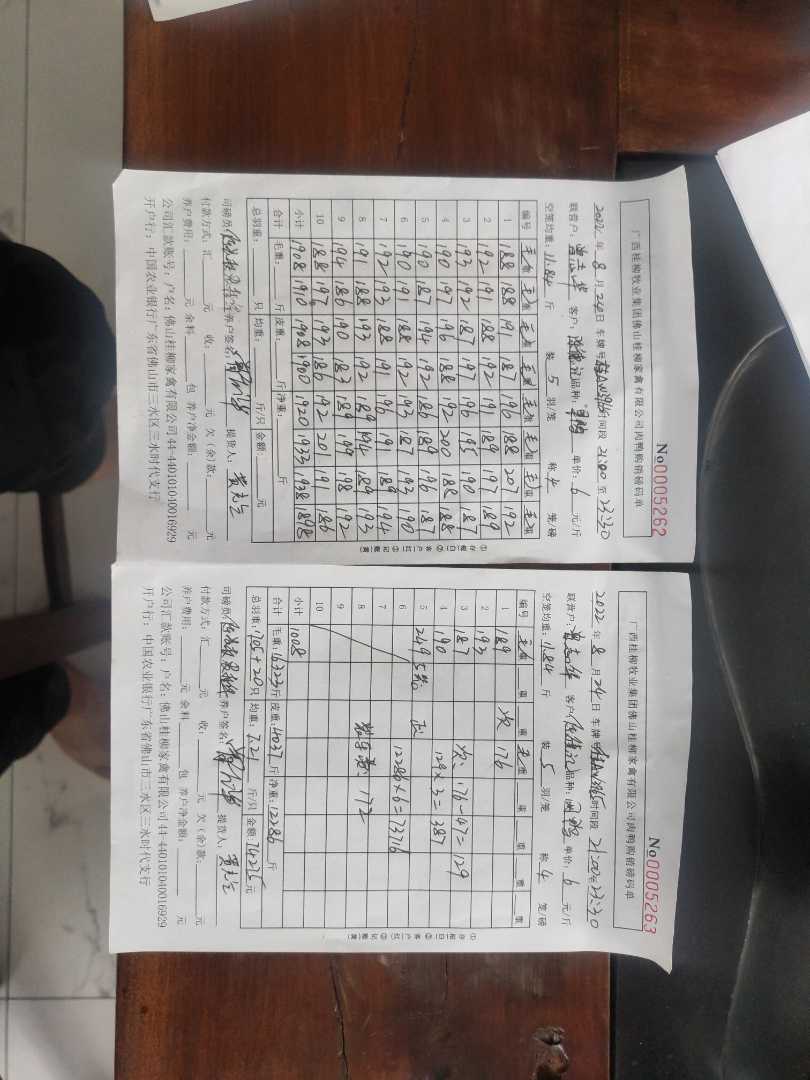 No0005262
广西桂柳牧业集团佛山桂柳家禽有限公司肉鸭购销磅码单
2022 年 8 月 24日 车牌号 时间段 21:00 至 23:30
联营户: 客户: 品种: 单价: 6 元/斤
空笼均重: 11.84 斤 装 5 羽/笼 称 4 笼/磅
编号 毛重 毛重 毛重 毛重 毛重 毛重 毛重 毛重
1 188 188 191 187 196 188 207 192
2 192 191 188 192 191 189 197 189
3 193 192 187 197 196 195 190 187
4 190 197 196 188 192 200 188 188
5 190 187 194 192 186 189 196 187
6 190 191 188 192 193 187 193 190
7 192 193 188 191 196 191 189 194
8 191 188 193 192 189 194 189 193
9 194 186 190 183 189 199 198 192
10 188 197 193 186 192 201 191 186
小计 1908 1910 1908 1900 1920 1933 1938 1898
合计 毛重: 斤 皮重: 斤 净重: 斤
总羽重: 只 均重: 斤/只 金额: 元
司磅员: 养户签名: 提货人:
付款方式: 汇 元 收: 元 欠(余)款: 元
养户费用: 元 余料 包 养户净金额: 元
公司汇款账号: 户名: 佛山桂柳家禽有限公司 44-440101040016929
开户行: 中国农业银行广东省佛山市三水区三水时代支行
①存根(白) ②客户(红) ③记账(黄)
No0005263
广西桂柳牧业集团佛山桂柳家禽有限公司肉鸭购销磅码单
2022 年 8 月 24 日 车牌号 时间段 21:00至23:30
联营户: 客户 品种: 单价: 6 元/斤
空笼均重: 11.84 斤 装 5 羽/笼 称 4 笼/磅
编号 毛重 重 重 毛重 重 重 重 重
1 189 次 176
2 193
3 187 次: 176-47=129
4 190 129×3=387
5 249 5笼
6 12286×6=73716
7
8 172
9
10
小计 1008
合计 毛重: 16323斤 皮重: 4037斤 净重: 12286斤
总羽重: 1705+20只 均重: 7.21 斤/只 金额: 74275元
司磅员: 养户签名: 提货人:
付款方式: 汇 元 收: 元 欠(余)款: 元
养户费用: 元 余料 包 养户净金额: 元
公司汇款账号: 户名: 佛山桂柳家禽有限公司 44-440101040016929
开户行: 中国农业银行广东省佛山市三水区三水时代支行
①存根(白) ②客户(红) ③记账(黄)